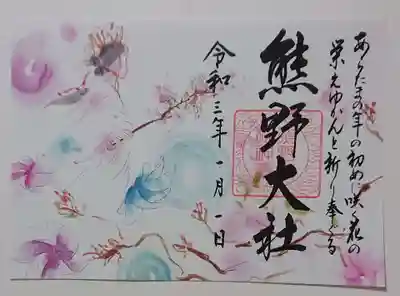 あらたまの年の初めに咲く花の
栄えゆかんと祈り奉る
熊野大社
令和三年一月一日